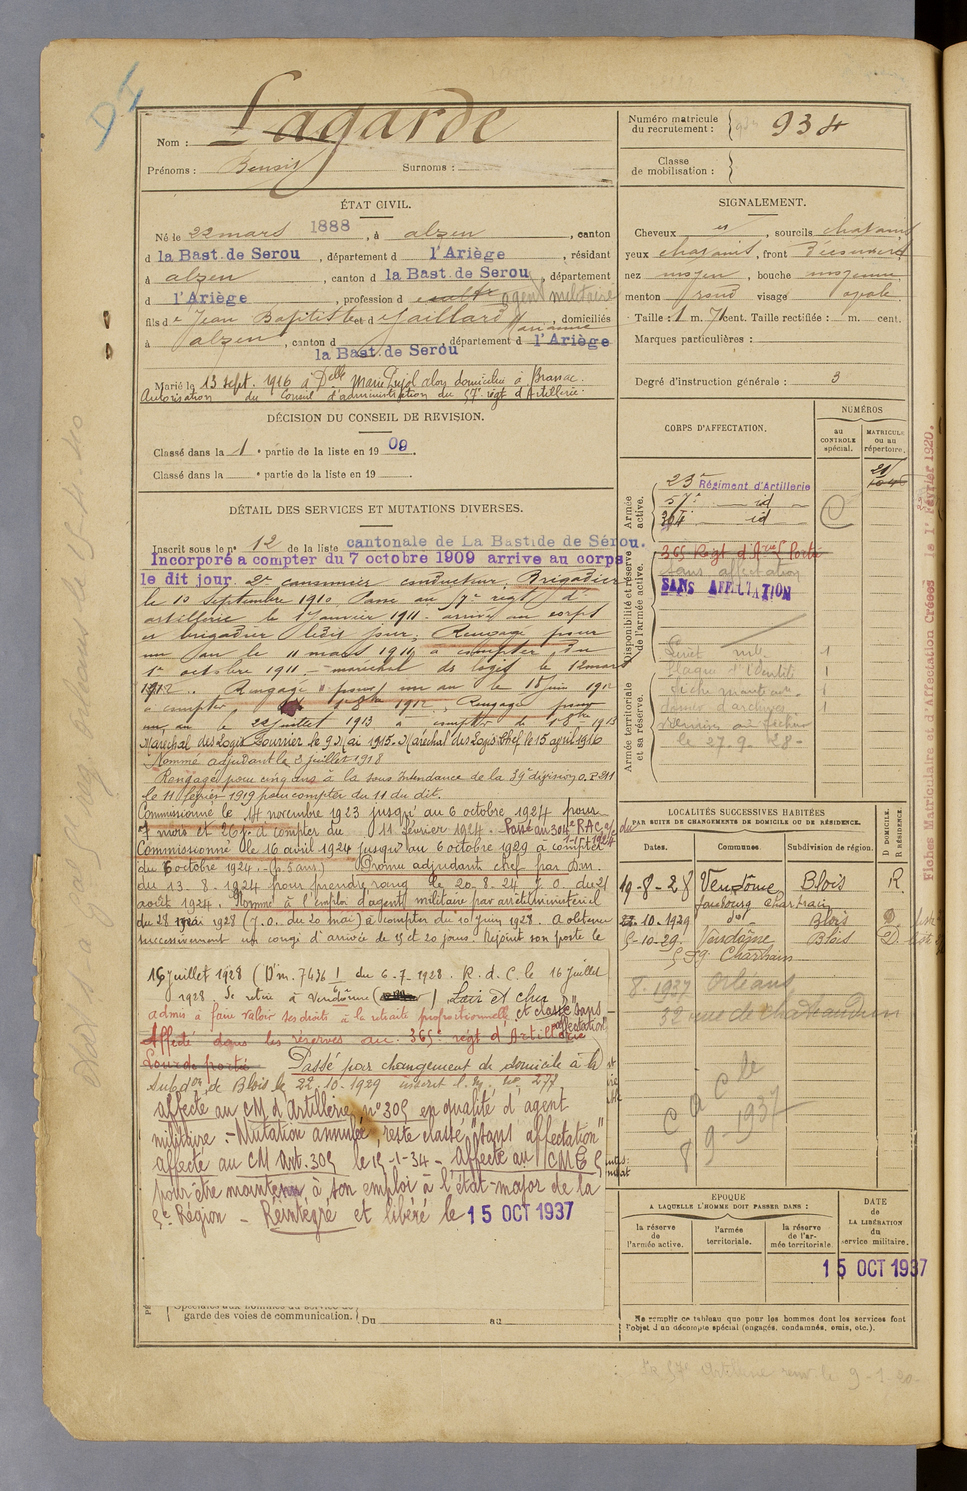 Lagarde
Nom :
Prénoms : Benoît Surnoms :
Numéro matricule
du recrutement : 934
Classe
de mobilisation :
ÉTAT CIVIL.
Né le 22 mars 1888, à alzen, canton
d la Bast. de Serou, département d l'Ariège, résidant
à alzen, canton d la Bast. de Serou, département
d l'Ariège, profession d agent militaire
fils de Jean Baptiste et d Gaillard Marianne, domiciliés
à alzen, canton d la Bast. de Serou, département d l'Ariège
Marié le 13 sept. 1916 à Delle Marie Pujol alors domiciliée à Brassac.
Autorisation du Conseil d'administration du 57e régt d'Artillerie.
DÉCISION DU CONSEIL DE REVISION.
Classé dans la 1e partie de la liste en 1909.
Classé dans la e partie de la liste en 19 .
DÉTAIL DES SERVICES ET MUTATIONS DIVERSES.
Inscrit sous le n° 12 de la liste cantonale de La Bastide de Sérou.
Incorporé à compter du 7 octobre 1909 arrivé au corps
le dit jour. 2e canonnier conducteur. Brigadier
le 10 Septembre 1910. Passé au 57e régt d'
artillerie le 1er Janvier 1911 - arrivé au corps
et brigadier ledit jour. Rengagé pour
un an le 11 mars 1911 à compter du
1er octobre 1911. - maréchal des logis le 12 mars
1912. Rengagé pour un an le 18 juin 1912
à compter du 1er 8bre 1912. Rengagé pour
un an le 22 juillet 1913 à compter du 1er 8bre 1913
Maréchal des Logis Fourrier le 9 Mai 1915. Maréchal des Logis Chef le 15 avril 1916
Nommé adjudant le 3 juillet 1918
Rengagé pour cinq ans à la sous Intendance de la 39e division, O.P. 211
le 11 février 1919 pour compter du 11 du dit.
Commissionné le 14 novembre 1923 jusqu'au 6 octobre 1924 pour
7 mois et 26 j. à compter du 11 février 1924. Passé au 304e RAC du
Commissionné le 16 avril 1924 jusqu'au 6 octobre 1929 à compter
du 6 octobre 1924. (p. 5 ans) Promu adjudant chef par Dm.
du 13. 8. 1924 pour prendre rang le 20. 8. 24 J.O. du 21
août 1924. Nommé à l'emploi d'agent militaire par arrêté ministériel
du 28 mai 1928 (J.O. du 20 mai) à compter du 10 Juin 1928. A obtenu
successivement un congé d'arrivée de 15 et 20 jours. Rejoint son poste le
16 juillet 1928 (Dm. 7436 I du 6.7.1928. R.d.C. le 16 Juillet
1928. Se retire à Vendôme Loir et Cher
admis à faire valoir ses droits à la retraite proportionnelle et classé "sans affectation"
Affecté dans les réserves au 365e régt d'Artillerie
Lourde portée Passé par changement de domicile à la
subdon de Blois le 22.10.1929
affecté au CM d'Artillerie n° 305 en qualité d'agent
militaire. - Mutation annulée, reste classé "sans affectation"
affecté au CM Art. 305 le 15-1-34 - affecté au CME 5
pour être maintenu à son emploi à l'état-major de la
5e Région - Réintégré et libéré le 15 OCT 1937
garde des voies de communication. Du au
SIGNALEMENT.
Cheveux et, sourcils chatains
yeux chatains, front découvert
nez moyen, bouche moyenne
menton rond visage ovale
Taille : 1 m. 71 cent. Taille rectifiée : m. cent.
Marques particulières :
Degré d'instruction générale : 3
CORPS D'AFFECTATION.
NUMÉROS
au
CONTROLE
spécial.
MATRICULE
ou au
répertoire.
Armée
active.
23e Régiment d'Artillerie
57e id
304 id
21
Disponibilité et réserve
de l'armée active.
365 Regt d'Arie Lde Portée
sans affectation
SANS AFFECTATION
Armée territoriale
et sa réserve.
Livret mle 1
Plaque d'Identité 1
1
dossier d'archives 1
le 27.9.28-
LOCALITÉS SUCCESSIVES HABITÉES
PAR SUITE DE CHANGEMENTS DE DOMICILE OU DE RÉSIDENCE.
Dates. Communes. Subdivision de région.
D DOMICILE.
R RÉSIDENCE
19-8-28 Vendôme Blois R.
faubourg Chartrain
22.10.1929 do Blois D
5-10-29. Vendôme Blois D.
5 Fg Chartrain
8.1937 Orléans
32 rue de Chateaudun
8 9 - 1937
ÉPOQUE
A LAQUELLE L'HOMME DOIT PASSER DANS :
la réserve
de
l'armée active.
l'armée
territoriale.
la réserve
de l'ar-
mée territoriale
DATE
de
LA LIBÉRATION
du
service militaire.
15 OCT 1937
Ne remplir ce tableau que pour les hommes dont les services font
l'objet d'un décompte spécial (engagés, condamnés, omis, etc.).
Fiches Matriculaire et d'Affectation Créées le 1er Février 1920.